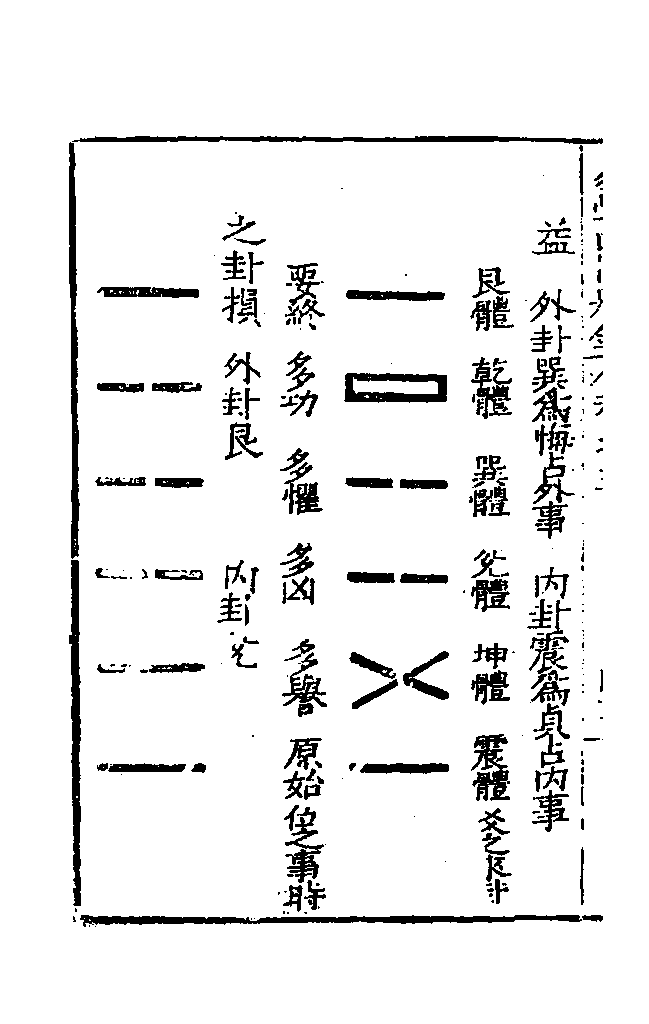 益 外卦巽為悔占外事 內卦震為貞占內事
艮體 乾體 巽體 兊體 坤體 震體 爻之
要終 多功 多懼 多凶 多譽 原始 位之事時
之卦損 外卦艮 內卦兊